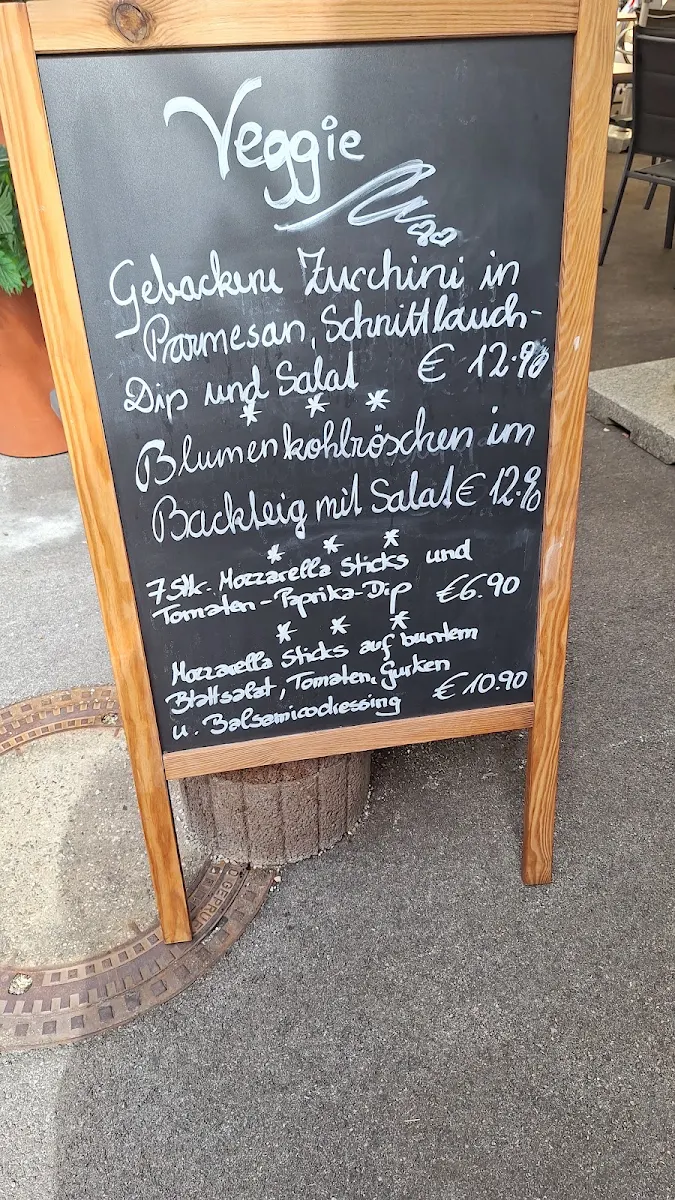 Veggie
Gebackene Zucchini in
Parmesan, Schnittlauch-
Dip und Salat € 12.90
* * *
Blumenkohlröschen im
Backteig mit Salat € 12.90
* * *
7 Stk. Mozzarella Sticks und
Tomaten-Paprika-Dip €6.90
* * *
Mozzarella Sticks auf buntem
Blattsalat, Tomaten, Gurken
u. Balsamicodressing € 10.90
GEPRÜ